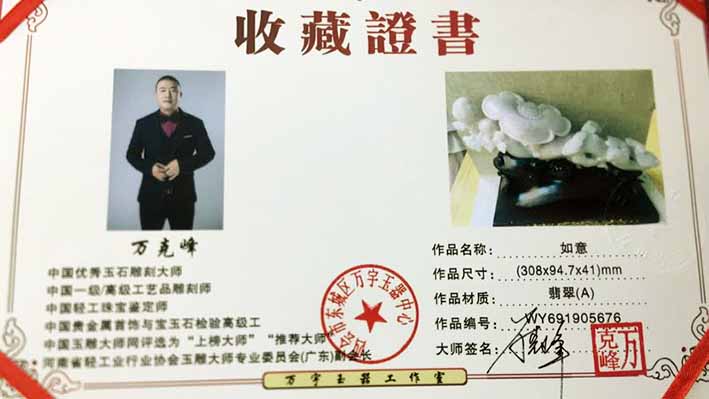 收藏證書
万克峰
中国优秀玉石雕刻大师
中国一级/高级工艺品雕刻师
中国轻工珠宝鉴定师
中国贵金属首饰与宝玉石检验高级工
中国玉雕大师网评选为“上榜大师”“推荐大师”
河南省轻工业行业协会玉雕大师专业委员会(广东)副会长
四会市东城区万宇玉器中心
作品名称： 如意
作品尺寸： (308x94.7x41)mm
作品材质： 翡翠(A)
作品编号： WY691905676
大师签名：
万克峰
万宇玉器工作室